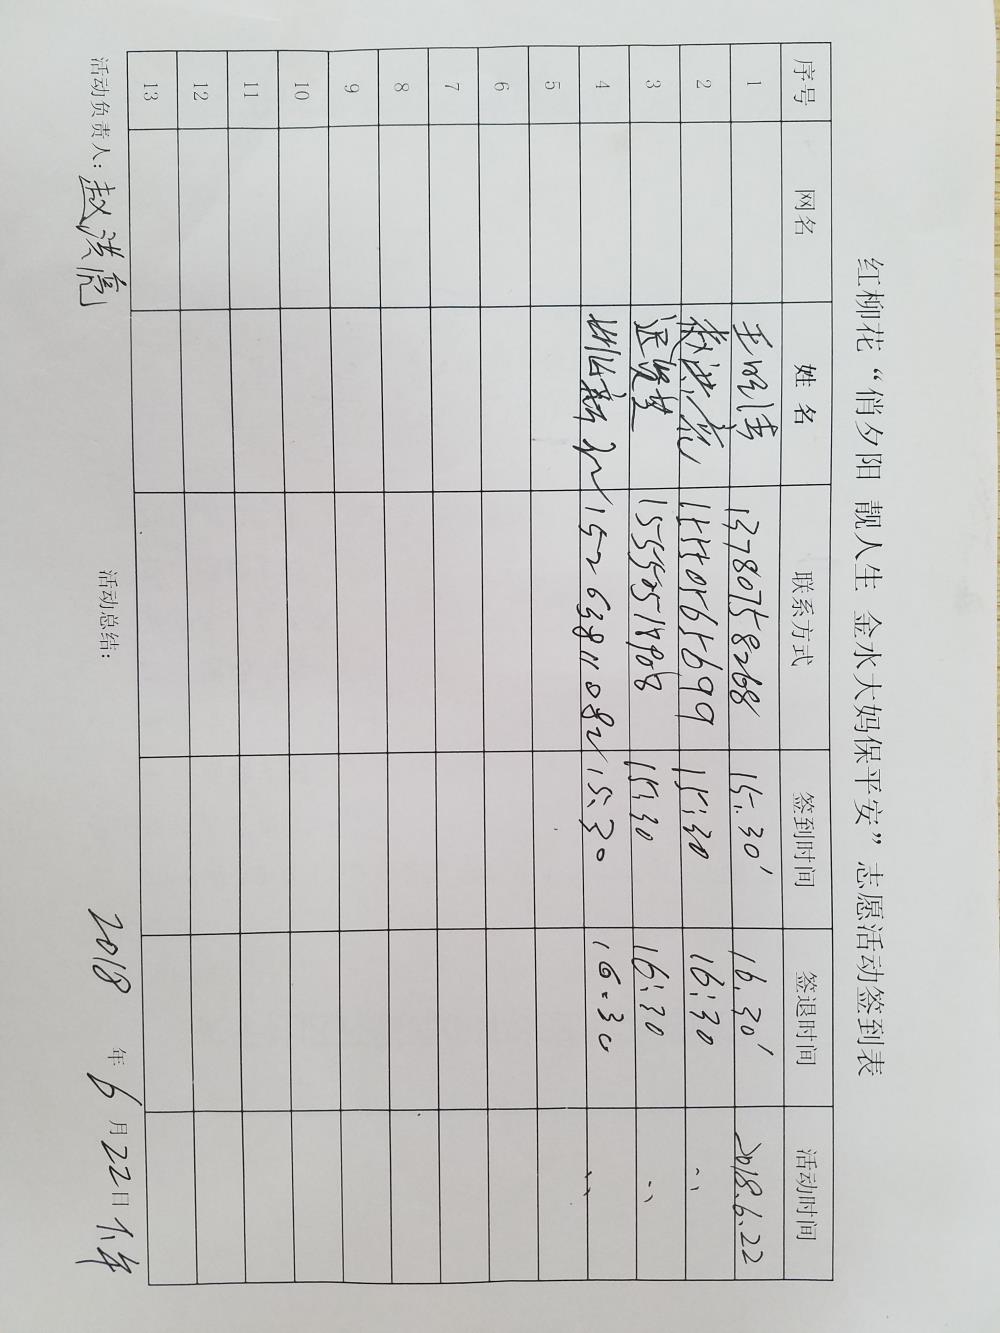 红柳花“俏夕阳 靓人生 金水大妈保平安”志愿活动签到表
序号 网名 姓名 联系方式 签到时间 签退时间 活动时间
1 13780758268 15:30' 16:30' 2018.6.22
2 赵洪亮 15550565699 15:30 16:30 〃
3 15:30 16:30 〃
4 15263811082 15:30 16:30 〃
5
6
7
8
9
10
11
12
13
活动负责人：赵洪亮 活动总结： 2018年6月22日下午